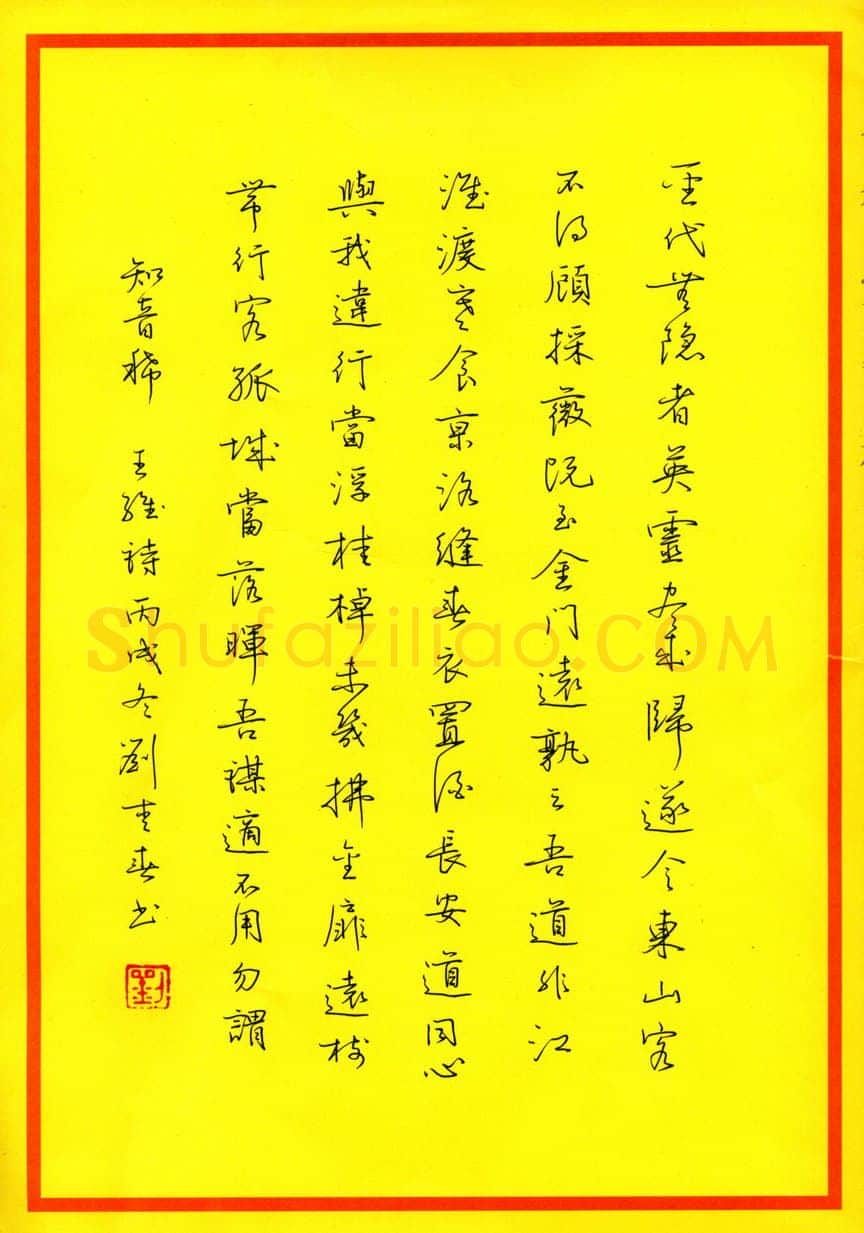 聖代無隱者英靈盡來歸遂令東山客
不得顧採薇既至金門遠孰云吾道非江
淮渡寒食京洛縫春衣置酒長安道同心
與我違行當浮桂棹未幾拂金扉遠樹
帶行客孤城當落暉吾謀適不用勿謂
知音稀 王維詩丙戌冬劉春书
劉
Shufaziliao.COM